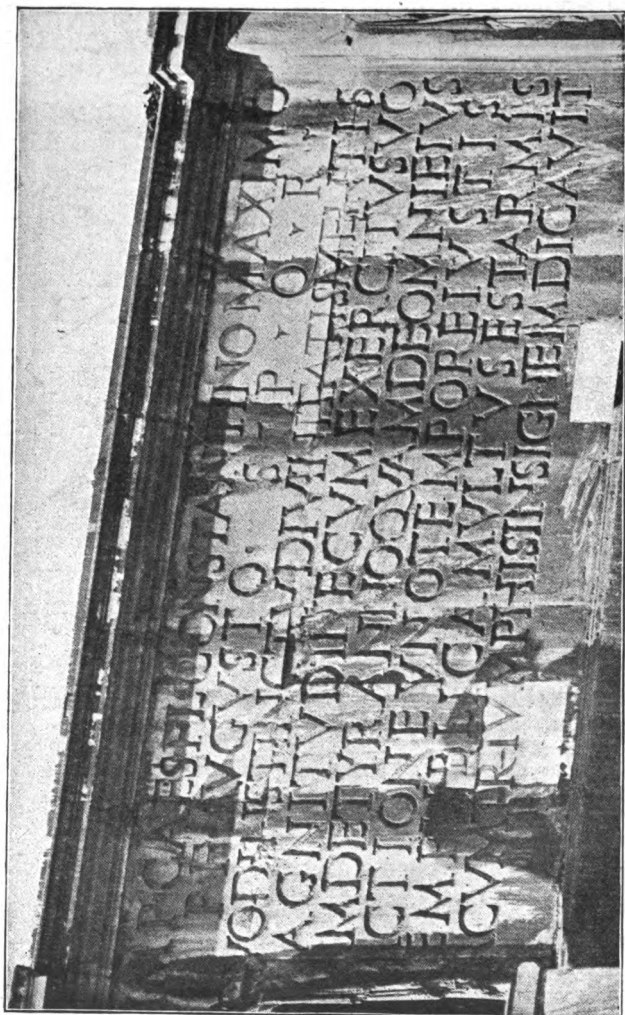 IMP CAES FL CONSTANTINO MAXIMO
P F AVGVSTO S P Q R
VOD INSTINCTV DIVINITATIS MENTIS
AGNITVDINE CVM EXERCITV SVO
M DE TYRANNO QVAM DE OMNI EIVS
CTIONE VNO TEMPORE IVSTIS
EMPVBLICAM VLTVS EST ARMIS
CVM TRIVMPHIS INSIGNEM DICAVIT